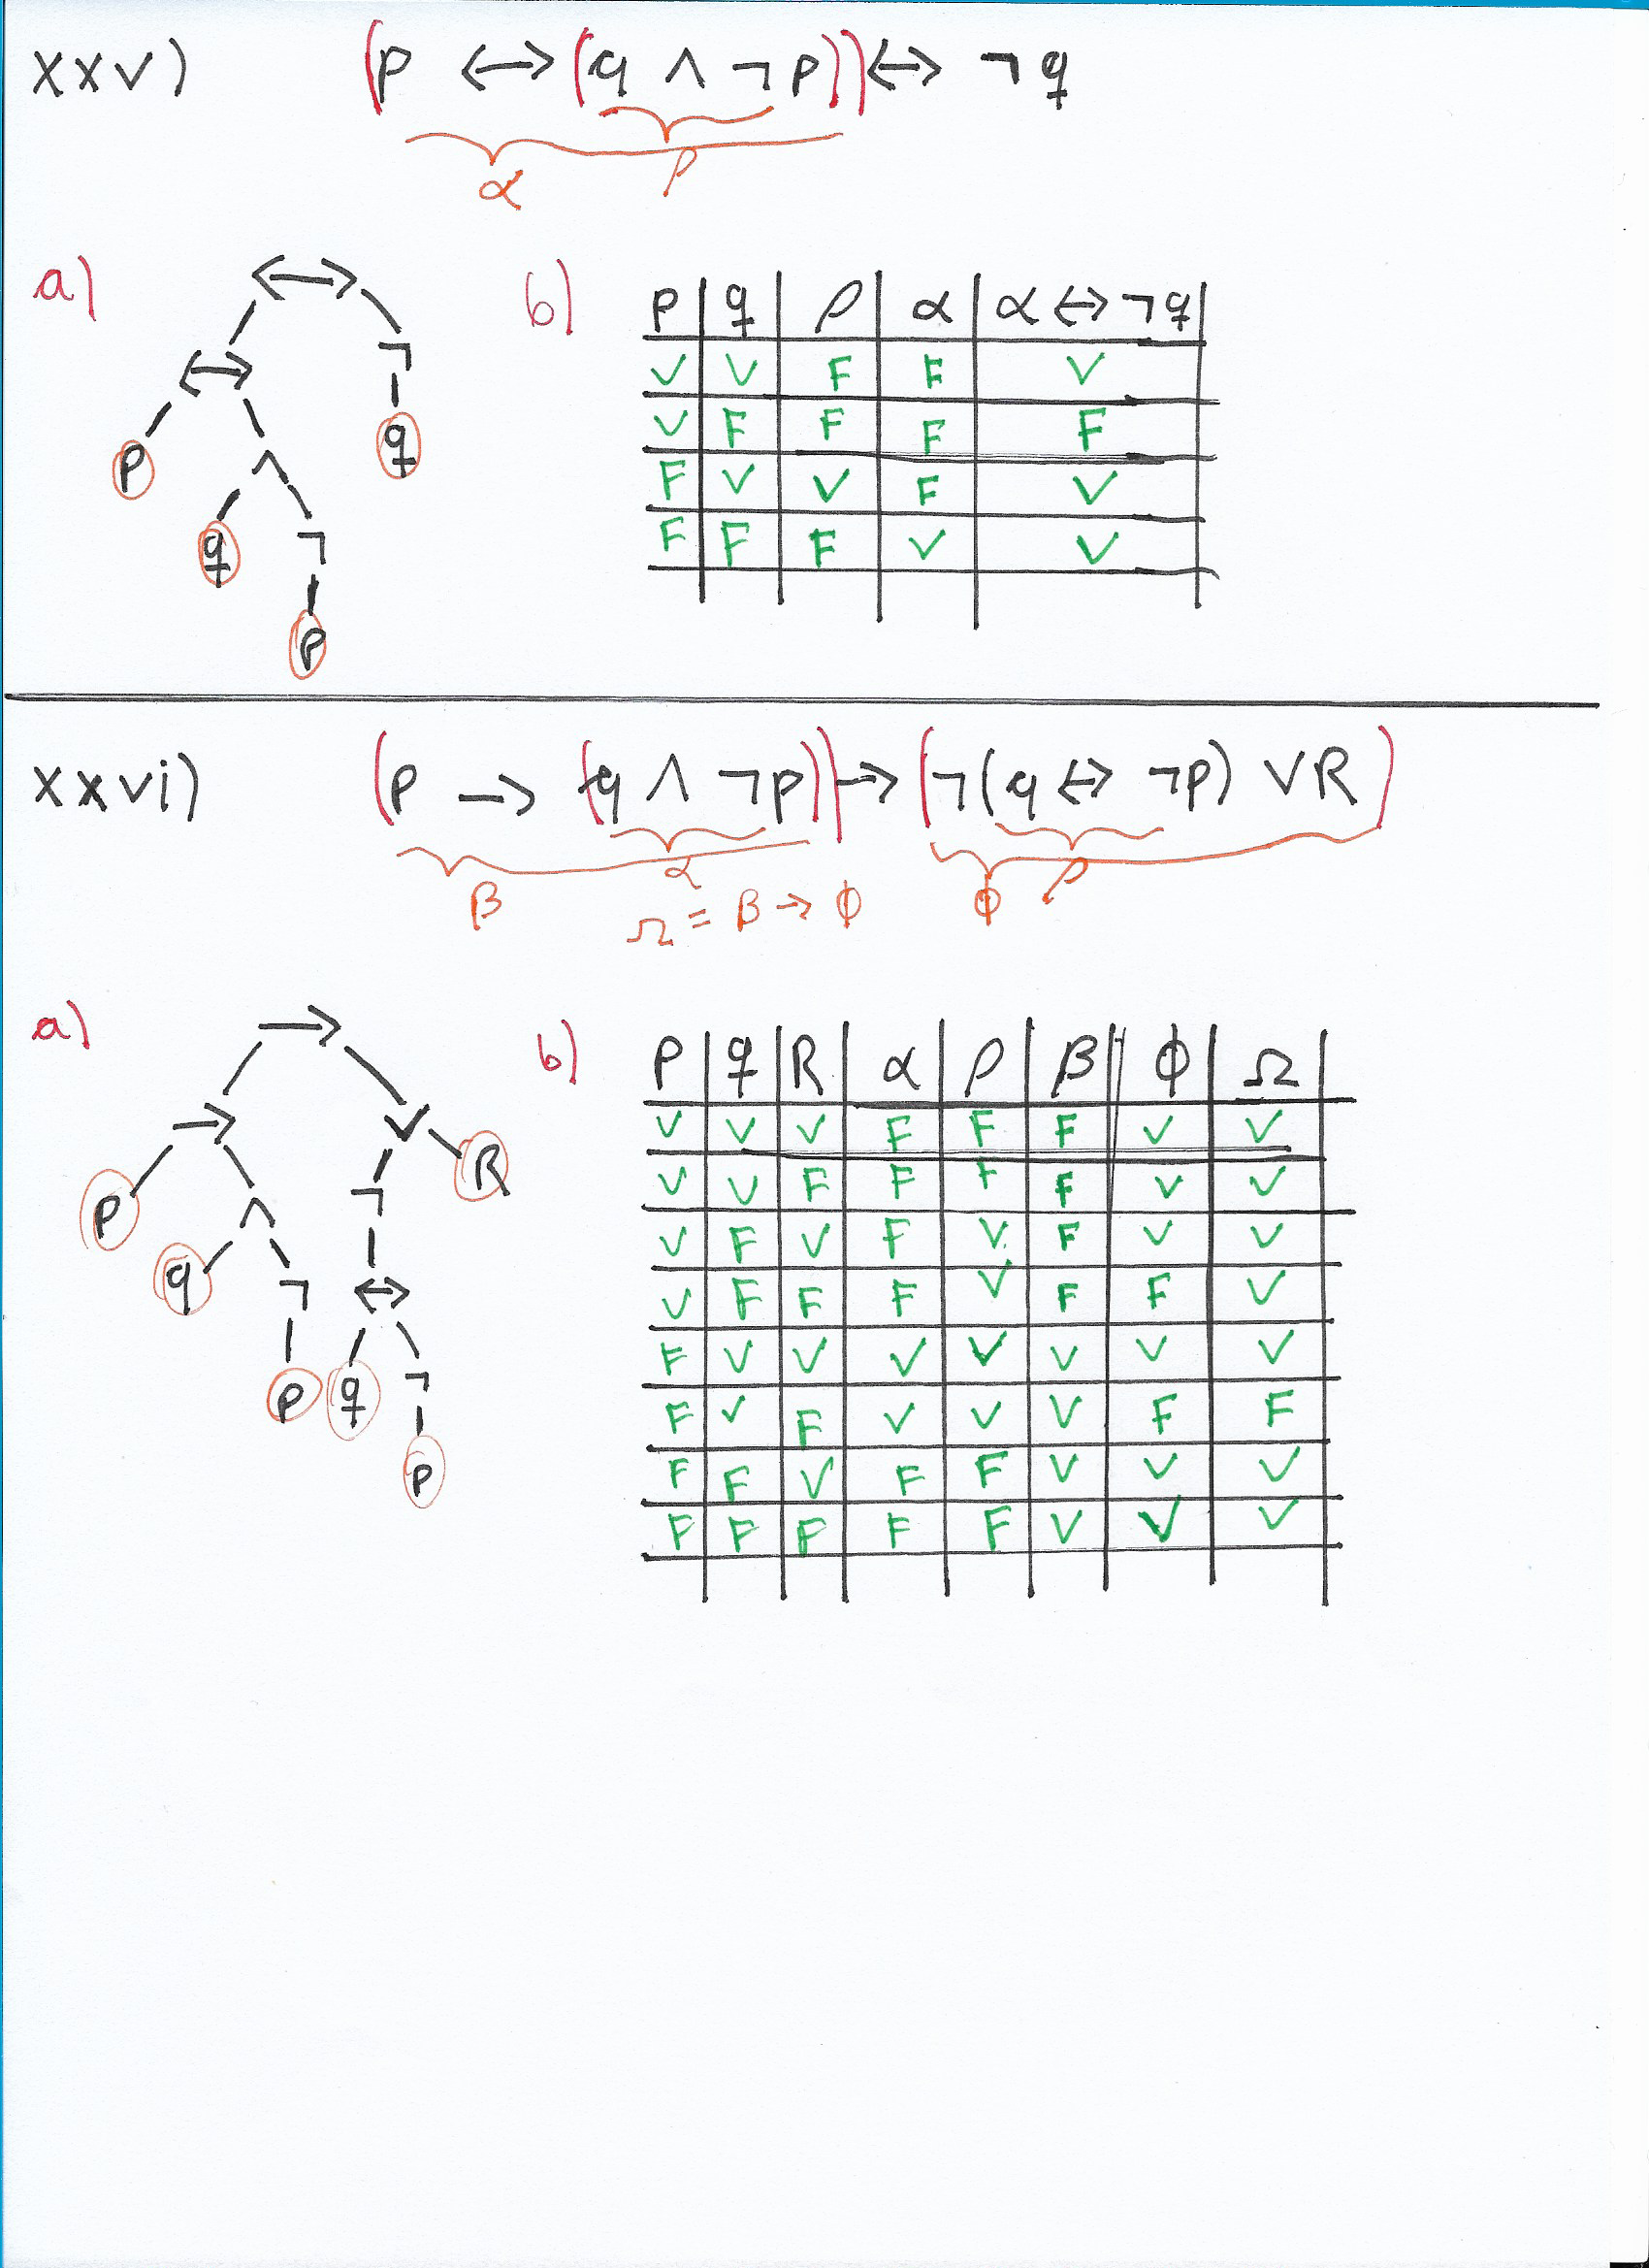 xxv) (p ↔ (q ∧ ¬p)) ↔ ¬q
ρ
α
a)
↔
↔ ¬
p ∧ q
q ¬
p
b)
p q ρ α α ↔ ¬q
V V F F V
V F F F F
F V V F V
F F F V V
xxvi) (p → (q ∧ ¬p)) → (¬(q ↔ ¬p) ∨ R)
α ρ
β Ω = β → ϕ ϕ
a)
→
→ ∨
p ∧ ¬ R
q ¬ ↔
p q ¬
p
b)
p q R α ρ β ϕ Ω
V V V F F F V V
V V F F F F V V
V F V F V F V V
V F F F V F F V
F V V V V V V V
F V F V V V F F
F F V F F V V V
F F F F F V V V